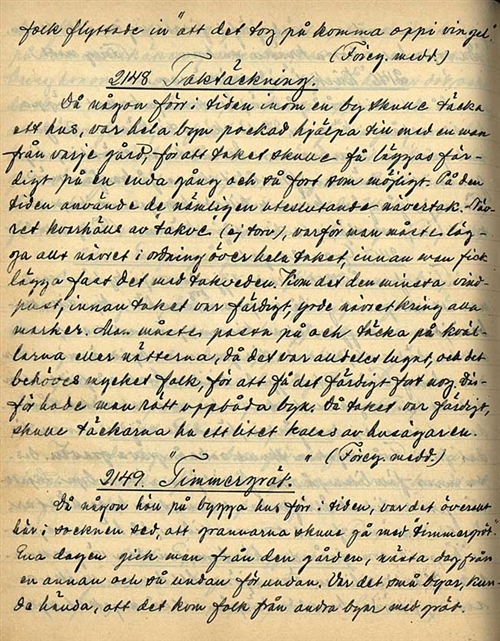 folk flyttade in "att det tog på komma oppi vingel".
(Föreg. medd.)
2148. Taktäckning.
Då någon förr i tiden inom en by skulle täcka
ett hus, var hela byn pockad hjälpa till med en man
från varje gård, för att taket skulle få läggas fär-
digt på en enda gång och så fort som möjligt. På den
tiden använde de nämligen uteslutande nävertak. Näv-
ret kvarhölls av "takve" (ej torv), varför man måste läg-
ga allt nävret i ordning över hela taket, innan man fick
lägga fast det med takveden. Kom det den minsta vind-
pust, innan taket var färdigt, yrde nävret kring alla
marker. Man måste passa på och täcka på kväl-
larna eller nätterna, då det var alldeles lugnt, och det
behövdes mycket folk, för att få det färdigt fort nog. Där-
för hade man rätt uppbåda byn. Då taket var färdigt,
skulle täckarna ha ett litet kalas av husägaren.
(Föreg. medd.)
2149. "Timmergröt."
Då någon höll på bygga hus förr i tiden, var det överallt
här i socknen sed, att grannarna skulle gå med "timmergröt".
Ena dagen gick man från den gården, nästa dag från
en annan och så undan för undan. Var det små byar, kun-
de hända, att det kom folk från andra byar med gröt.